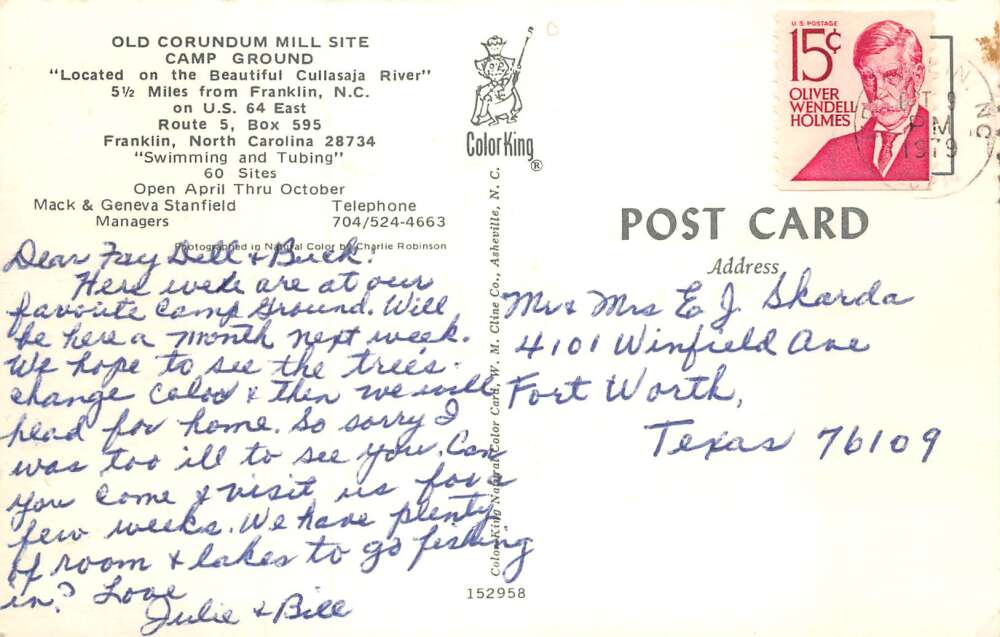 OLD CORUNDUM MILL SITE
CAMP GROUND
"Located on the Beautiful Cullasaja River"
5½ Miles from Franklin, N.C.
on U.S. 64 East
Route 5, Box 595
Franklin, North Carolina 28734
"Swimming and Tubing"
60 Sites
Open April Thru October
Mack & Geneva Stanfield Telephone
Managers 704/524-4663
Photographed in Natural Color by Charlie Robinson
Dear Fay Dell & Buck:
Here we are at our
favorite Camp Ground. Will
be here a month next week.
We hope to see the trees
change color & then we will
head for home. So sorry I
was too ill to see you. Can
you come & visit us for a
few weeks. We have plenty
of room & lakes to go fishing
in? Love
Julie & Bill
ColorKing®
Color King Natural Color Card, W. M. Cline Co., Asheville, N. C.
152958
U.S. POSTAGE
15¢
OLIVER
WENDELL
HOLMES
NC
PM
1979
POST CARD
Address
Mr & Mrs E J Skarda
4101 Winfield Ave
Fort Worth,
Texas 76109